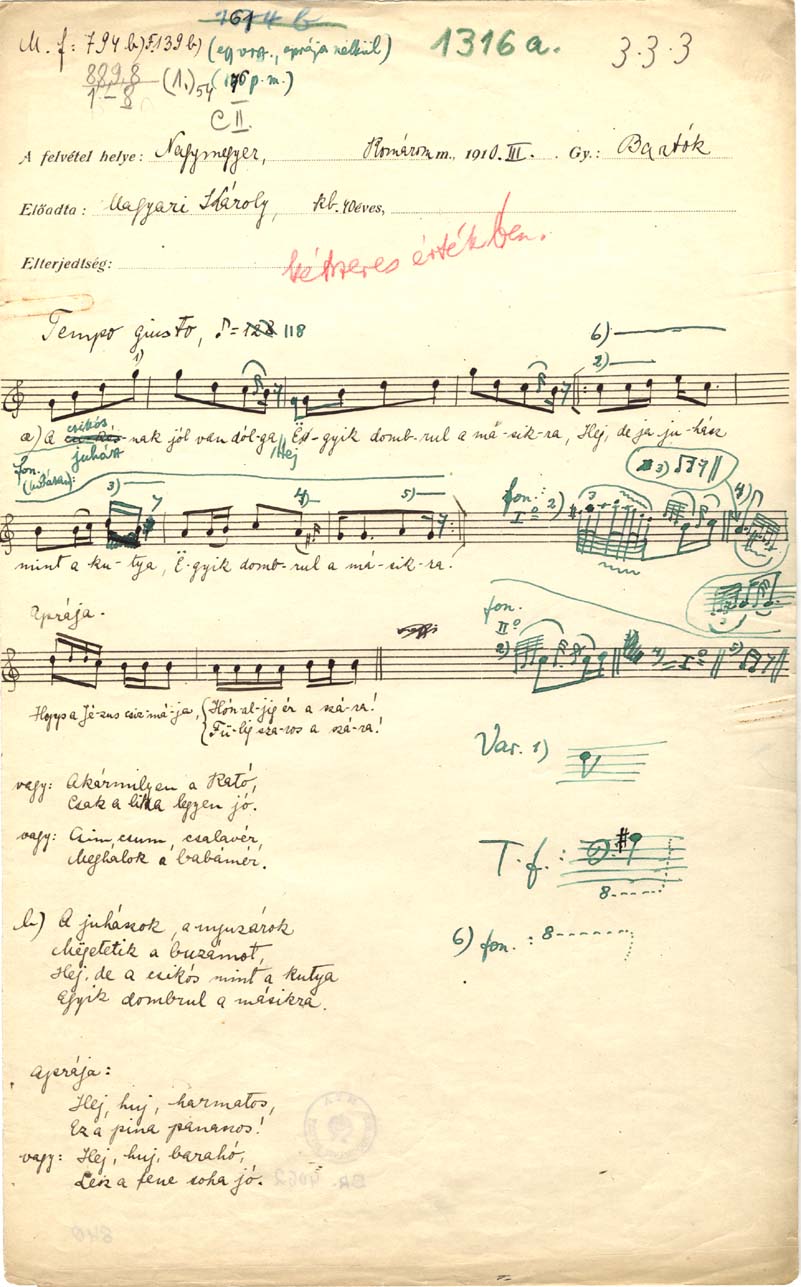 M. f: 794 b) 5139 b) (egy vers, aprája nélkül)
1316 a.
3.3.3
(1.)
C II.
A felvétel helye: Nagymegyer, Komárom m., 1910. III. Gy.: Bartók
Előadta: Magyari Károly, kb. 40 éves,
Elterjedtség:
kétszeres értékben.
Tempo giusto, ♪= 118
1)
6)
2)
a) A csikós-nak jól van dól-ga, Ë-gyik domb-rul a má-sik-ra, Hej, de ja ju-hász
juhász
Hej
fon.
3)
4)
5)
fon.: Iº 2)
3)
mint a ku-tya, Ë-gyik domb-rul a má-sik-ra!
Aprája.
fon. IIº
2)
4) = Iº
5)
Hogy s a Jé-zus csiz-má-ja, Hón-al-jig ér a szá-ra!
Fü-lig sza-ros a szá-ra!
Var. 1)
vagy: Akármilyen a Kató,
Csak a lika legyen jó.
vagy: Csim, csum, csalavér,
Meghalok a babámér.
T. f.:
8
6) fon.: 8
b) A juhászok, a nyuzárok
Mëgetetik a buzámot,
Hej, de a csikós mint a kutya
Egyik dombrul a másikra.
aprája:
Hej, huj, harmatos,
Ez a pina panaszos!
vagy: Hej, huj, barahó,
Lesz a fene soha jó.